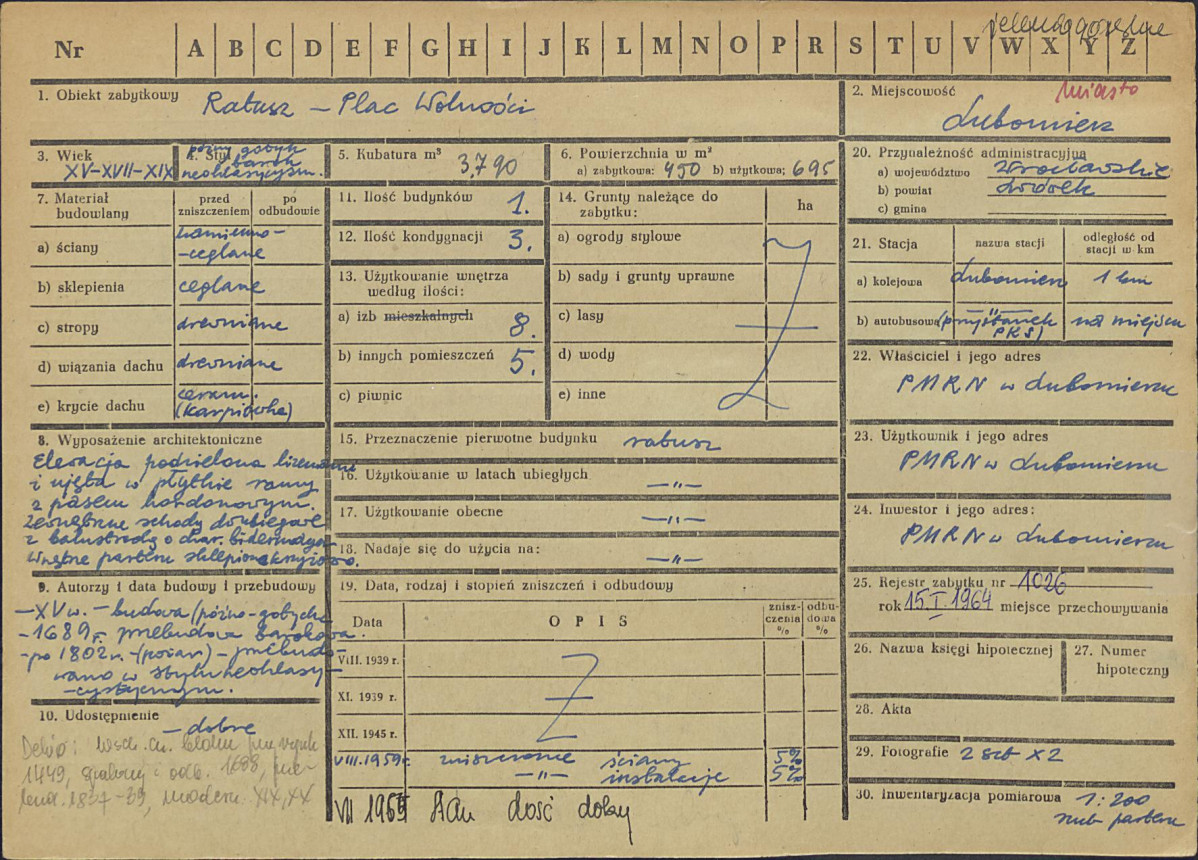 jeleniogórskie
Nr A B C D E F G H I J K L M N O P R S T U V W X Y Z
1. Obiekt zabytkowy Ratusz – Plac Wolności
2. Miejscowość miasto
Lubomierz
3. Wiek XV-XVII-XIX
4. Styl późny gotyk
barok
neoklasycyzm.
5. Kubatura m³ 3.790
6. Powierzchnia w m²
a) zabytkowa: 450 b) użytkowa: 695
7. Materiał budowlany
przed zniszczeniem
po odbudowie
a) ściany kamienno-
-ceglane
b) sklepienia ceglane
c) stropy drewniane
d) wiązania dachu drewniane
e) krycie dachu ceram.
(karpiówka)
8. Wyposażenie architektoniczne
Elewacja podzielona lizenami
i ujęta w płytkie ramy
z pasem kordonowym.
Zewnętrzne schody dwubiegowe
z balustradą o char.
Wnętrze parteru sklepione krzyżowo.
9. Autorzy i data budowy i przebudowy
– XV w. – budowa (późno-gotycka
– 1689 r. przebudowa barokowa.
– po 1802 r. – (pożar) – przebudo-
wano w stylu neoklasy-
-cystycznym.
10. Udostępnienie
– dobre
Dehio: Wsch. cz. bloku
1449, spalony i odb. 1688,
1837-39, modern. XIX, XX
11. Ilość budynków 1.
12. Ilość kondygnacji 3.
13. Użytkowanie wnętrza
według ilości:
a) izb mieszkalnych 8.
b) innych pomieszczeń 5.
c) piwnic
14. Grunty należące do
zabytku: ha
a) ogrody stylowe
b) sady i grunty uprawne
c) lasy
d) wody
e) inne
15. Przeznaczenie pierwotne budynku ratusz
16. Użytkowanie w latach ubiegłych –"–
17. Użytkowanie obecne –"–
18. Nadaje się do użycia na: –"–
19. Data, rodzaj i stopień zniszczeń i odbudowy
Data OPIS znisz-czenia % odbu-dowa %
VIII. 1939 r.
XI. 1939 r.
XII. 1945 r.
VIII. 1959 r. zniszczenie ściany 5%
–"– instalacje 5%
VII 1965 stan dość dobry
20. Przynależność administracyjna
a) województwo wrocławskie
b) powiat Lwówek
c) gmina
21. Stacja nazwa stacji odległość od stacji w km
a) kolejowa Lubomierz 1 km
b) autobusowa –"– (przystanek PKS) na miejscu
22. Właściciel i jego adres
PMRN w Lubomierzu
23. Użytkownik i jego adres
PMRN w Lubomierzu
24. Inwestor i jego adres:
PMRN w Lubomierzu
25. Rejestr zabytku nr 1026
rok 15.I.1964 miejsce przechowywania
26. Nazwa księgi hipotecznej
27. Numer hipoteczny
28. Akta
29. Fotografie 2 szt x2
30. Inwentaryzacja pomiarowa 1:200
rzut parteru